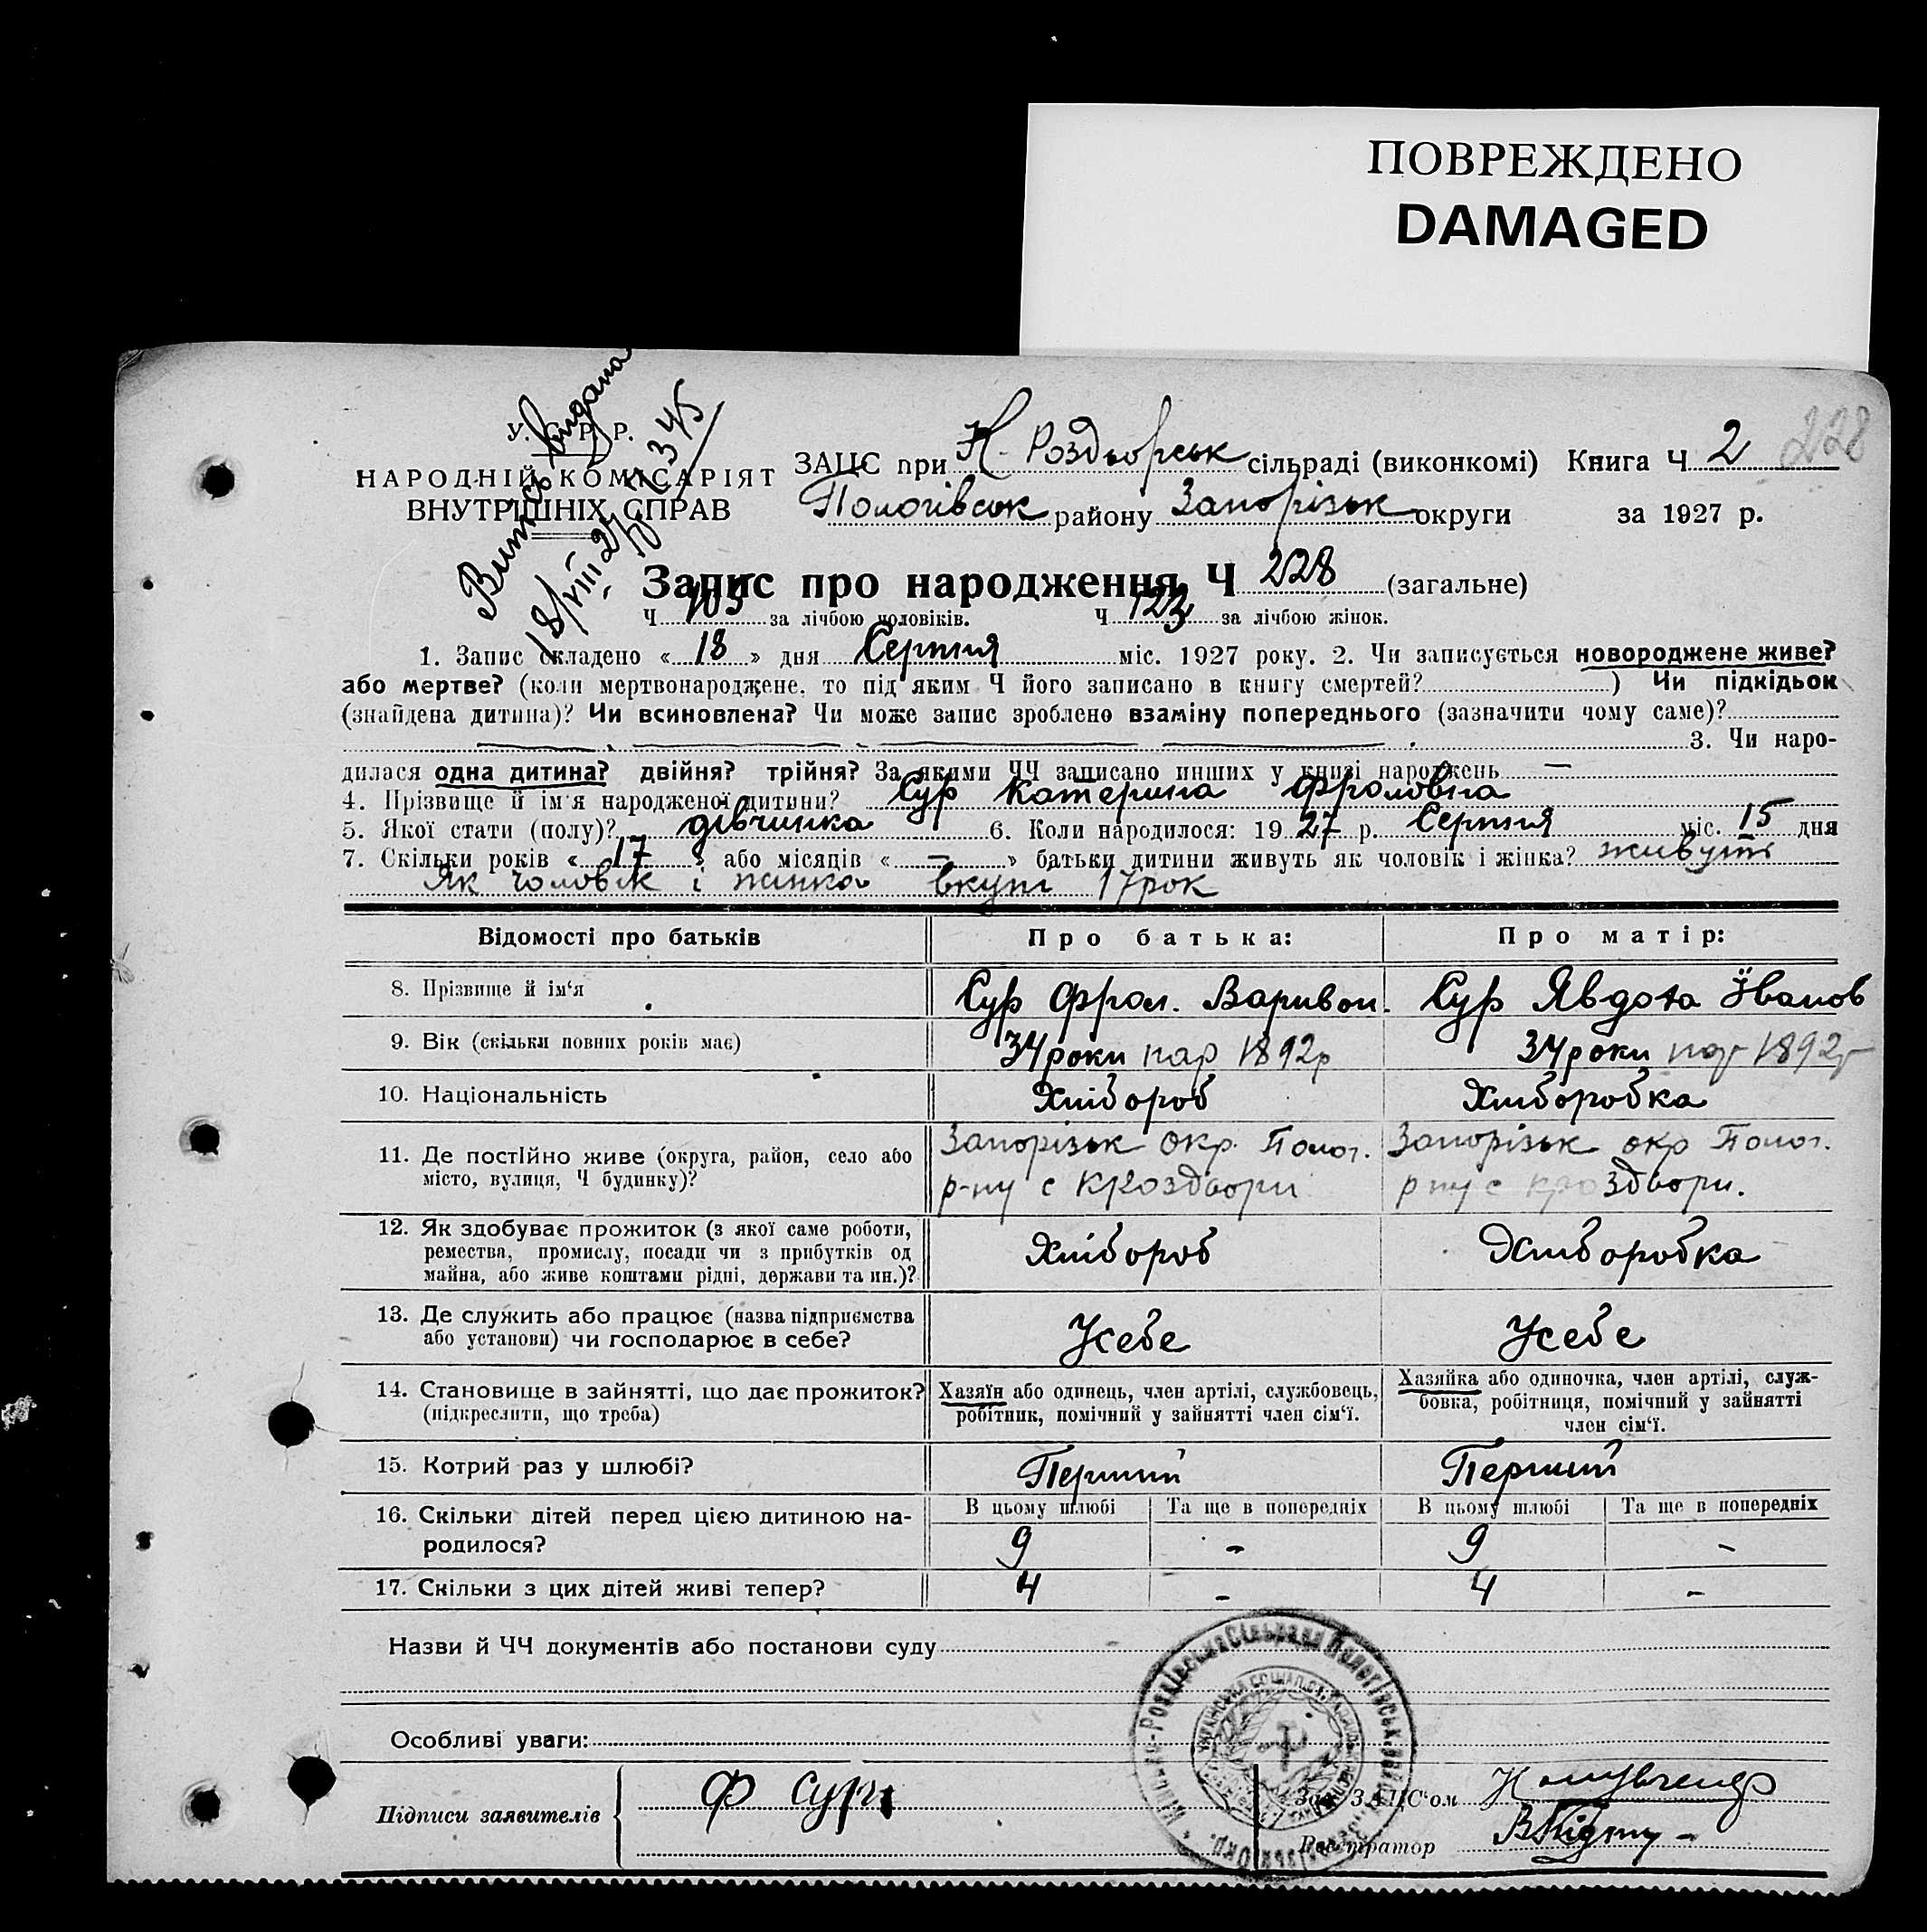 ПОВРЕЖДЕНО
DAMAGED
Витпсь видана
18/VIII 27 р. 7345
У. С. Р. Р.
НАРОДНІЙ КОМІСАРІЯТ
ВНУТРІШНІХ СПРАВ
ЗАЦС при К-Роздорськ сільраді (виконкомі) Книга Ч 2 228
Пологівськ району Запорізьк округи за 1927 р.
Запис про народження Ч 228 (загальне)
Ч 105 за лічбою чоловіків. Ч 123 за лічбою жінок.
1. Запис складено «18» дня Серпня міс. 1927 року. 2. Чи записується новороджене живе?
або мертве? (коли мертвонароджене, то під яким Ч його записано в книгу смертей? ) Чи підкідьок
(знайдена дитина)? Чи всиновлена? Чи може запис зроблено взаміну попереднього (зазначити чому саме)?
3. Чи наро-
дилася одна дитина? двійня? трійня? За якими ЧЧ записано инших у книзі народжень —
4. Прізвище й ім'я народженої дитини? Сур Катерина Фроловна
5. Якої стати (полу)? дівчинка 6. Коли народилося: 1927 р. Серпня міс. 15 дня
7. Скільки років «17» або місяців «—» батьки дитини живуть як чоловік і жінка? живуть
Як чоловік і жинка вкупі 17 рок
Відомості про батьків Про батька: Про матір:
8. Прізвище й ім'я Сур Фрол. Варивон. Сур Явдоха Іванов
9. Вік (скільки повних років має) 34 роки нар 1892р 34 роки нар 1892р
10. Національність Хлібороб Хліборобка
11. Де постійно живе (округа, район, село або Запорізьк окр. Полог. Запорізьк окр Полог.
місто, вулиця, Ч будинку)? р-ну с Кроздори р ну с Кроздори.
12. Як здобуває прожиток (з якої саме роботи,
ремества, промислу, посади чи з прибутків од Хлібороб Хліборобка
майна, або живе коштами рідні, держави та ин.)?
13. Де служить або працює (назва підприємства
або установи) чи господарює в себе? Усебе Усебе
14. Становище в зайнятті, що дає прожиток? Хазяїн або одинець, член артілі, службовець, Хазяйка або одиночка, член артілі, служ-
(підкреслити, що треба) робітник, помічний у зайнятті член сім'ї. бовка, робітниця, помічний у зайнятті
член сім'ї.
15. Котрий раз у шлюбі? Перший Перший
16. Скільки дітей перед цією дитиною на- В цьому шлюбі Та ще в попередніх В цьому шлюбі Та ще в попередніх
родилося? 9 - 9 -
17. Скільки з цих дітей живі тепер? 4 - 4 -
Назви й ЧЧ документів або постанови суду
Особливі уваги:
Підписи заявителів Ф Сур
Зав. ЗАЦС'ом
Реєстратор